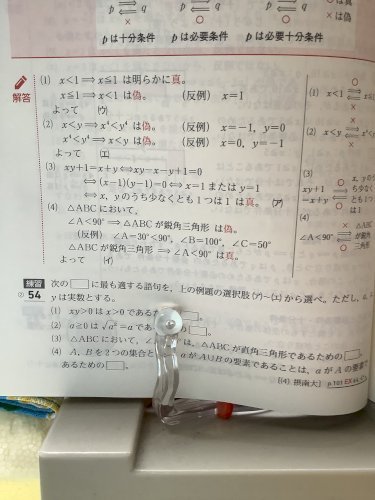 p ⇄ q p ⇄ q ⇄ は真
× ○ ○ ×は偽
pは十分条件 pは必要条件 pは必要十分条件
解答
(1) x<1⟹x≦1 は明らかに真。
x≦1⟹x<1 は偽。 (反例) x=1
よって (ウ)
(2) x<y⟹x⁴<y⁴ は偽。 (反例) x=-1, y=0
x⁴<y⁴⟹x<y は偽。 (反例) x=0, y=-1
よって (エ)
(3) xy+1=x+y⟺xy-x-y+1=0
⟺(x-1)(y-1)=0⟺x=1 または y=1
⟺x, y のうち少なくとも1つは1 は真。
(4) △ABCにおいて,
∠A<90°⟹△ABCが鋭角三角形 は偽。
(反例) ∠A=30°<90°, ∠B=100°, ∠C=50°
△ABCが鋭角三角形⟹∠A<90° は真。
よって (イ)
(1) x<1 ⇄ x
(2) x<y ⇄
(3) x, yの
xy+1 うち少なく
=x+y とも1つ
は1
(4) △ABC
∠A<90° が鋭角
三角形
練習 54
次の□に最も適する語句を, 上の例題の選択肢(ア)~(エ)から選べ。ただし,
yは実数とする。
(1) xy>0はx>0である □。
(2) a≧0は√a²=aであ □。
(3) △ABCにおいて, は, △ABCが直角三角形であるための□。
(4) A, Bを2つの集合と aがA∪Bの要素であることは, aがAの要素で
あるための□。
[(4) 摂南大] p.101 EX